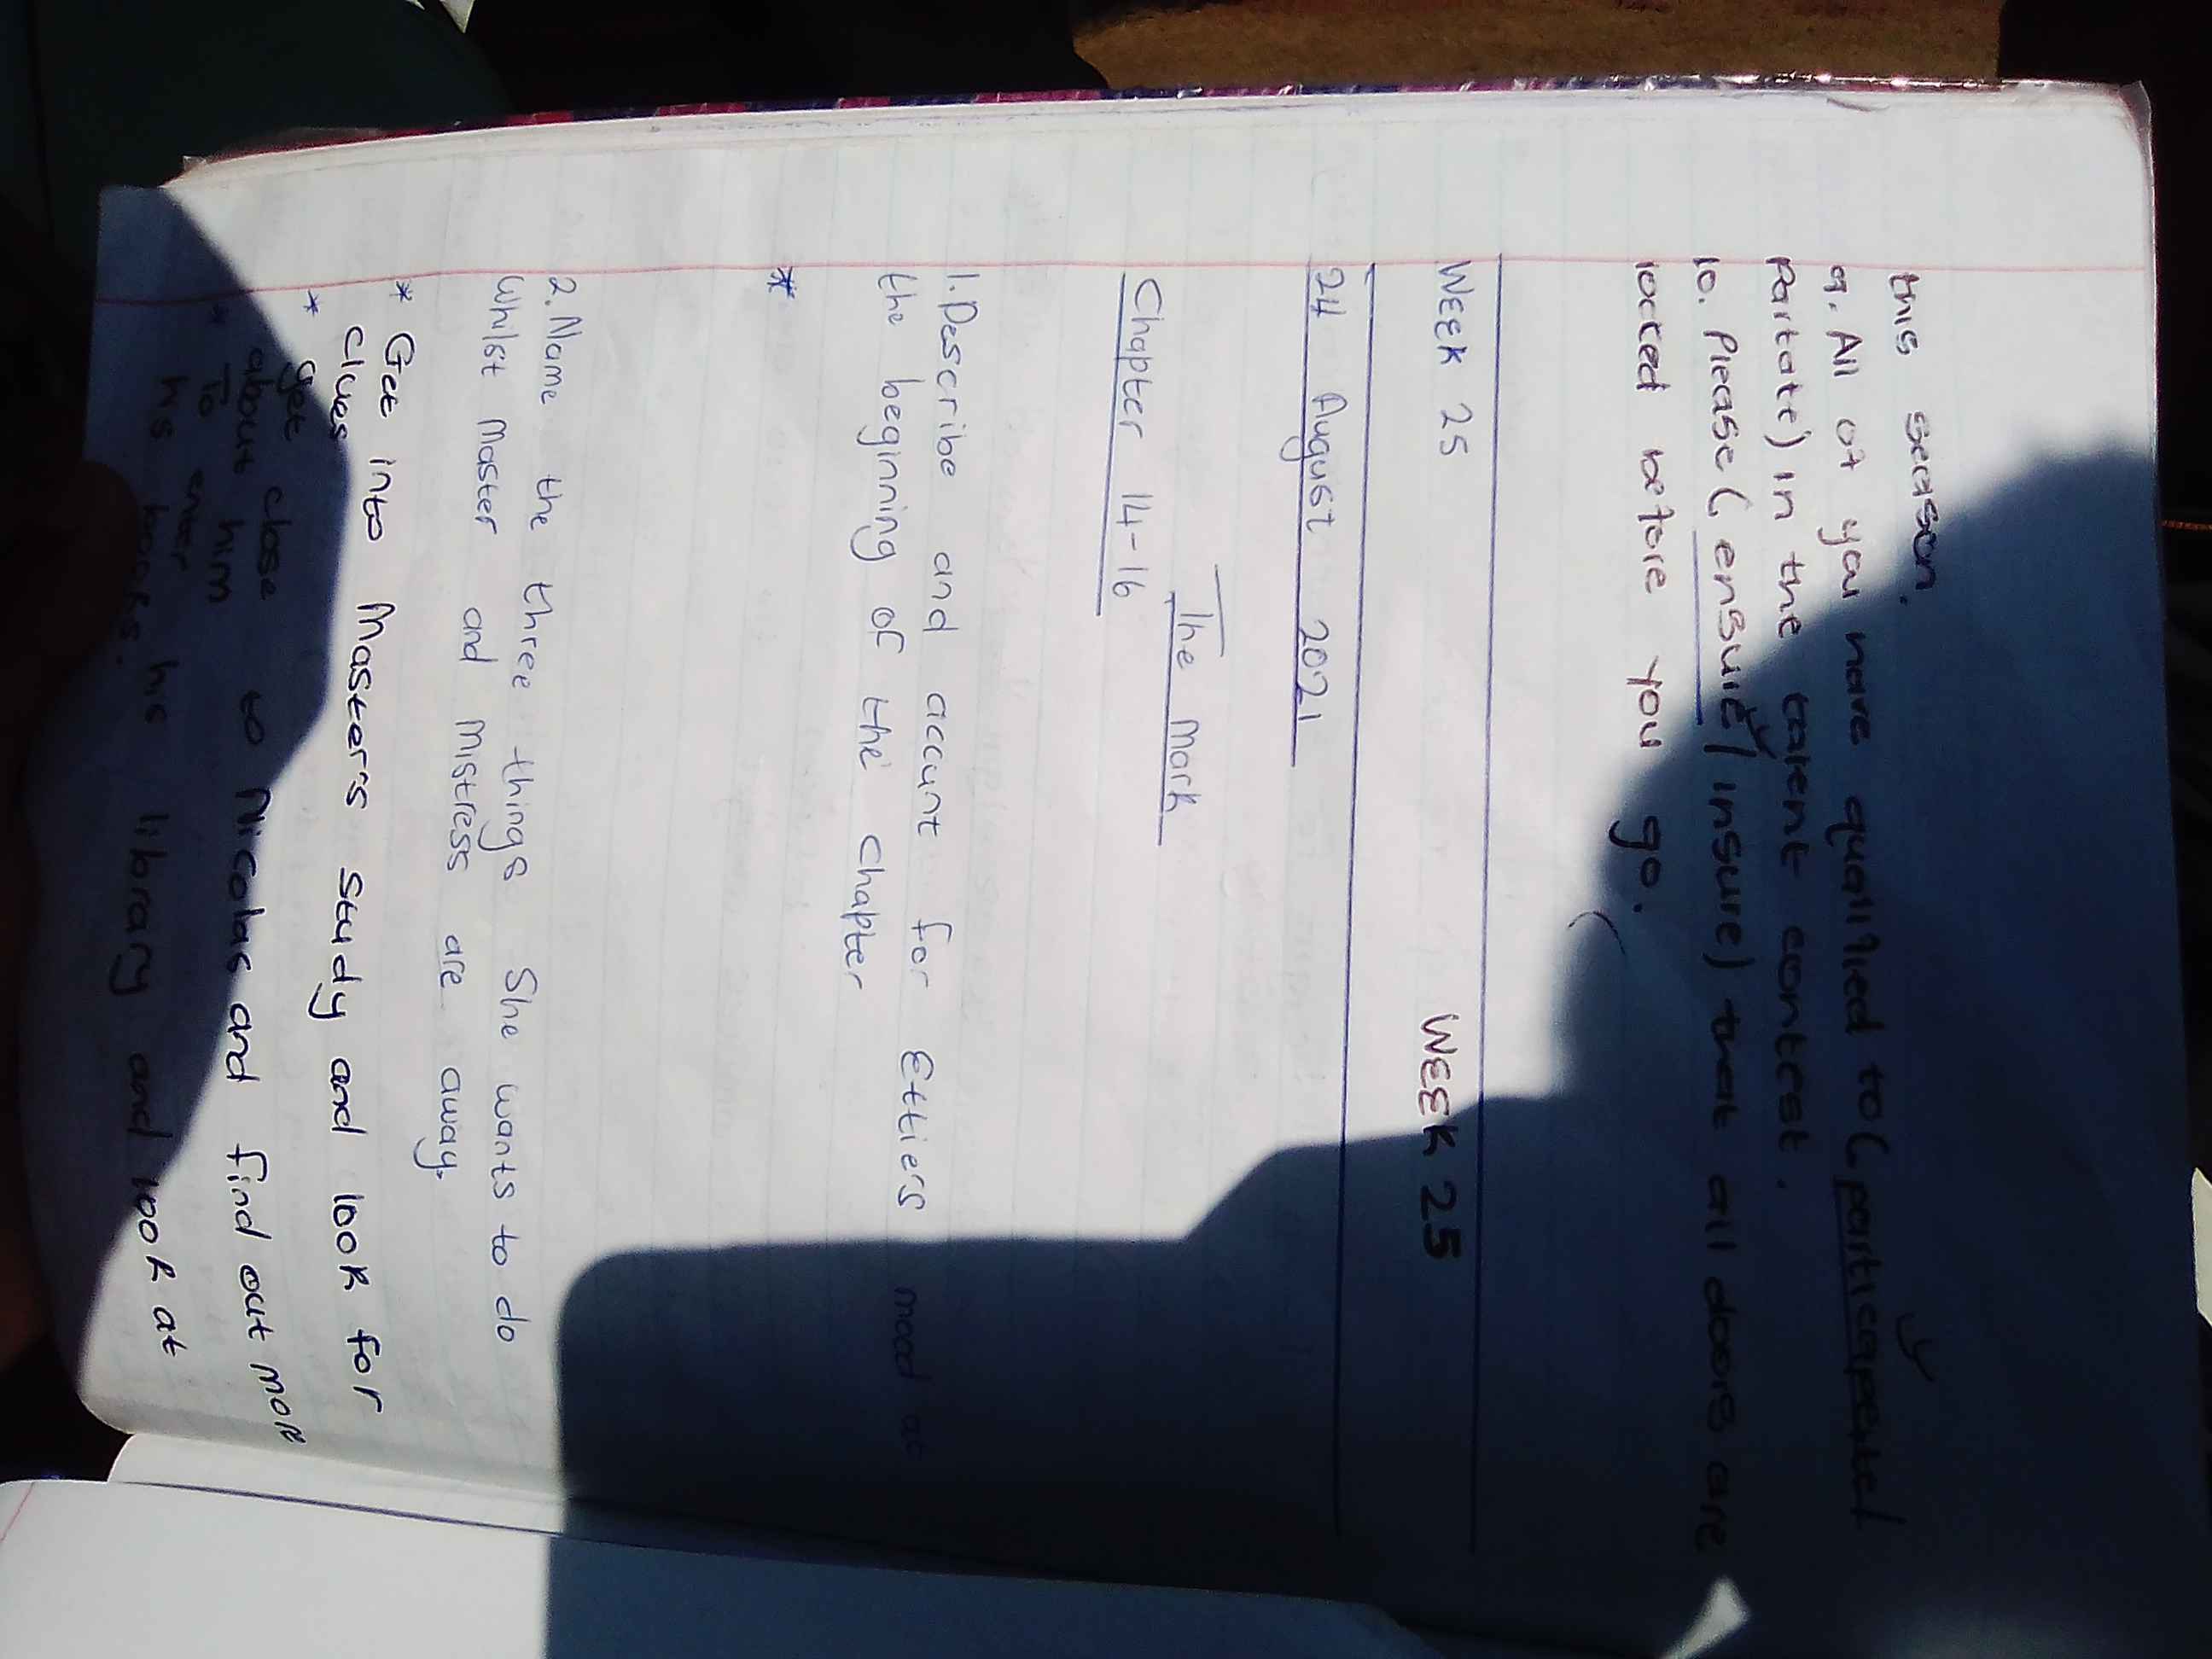 this season.
9. All of you have qualified to (participate/
Partate) in the talent contest.
10. Please (ensure/insure) that all doors are
locked before you go.
WEEK 25 WEEK 25
24 August 2021
The Mark
Chapter 14-16
1. Describe and accunt for Ettiers mood at
the beginning of the chapter
*
2. Name the three things She wants to do
Whilst Master and Mistress are away.
* Get into Master's study and look for
clues
* get close to Nicolas and find out more
about him
* To enter his library and look at
his books.